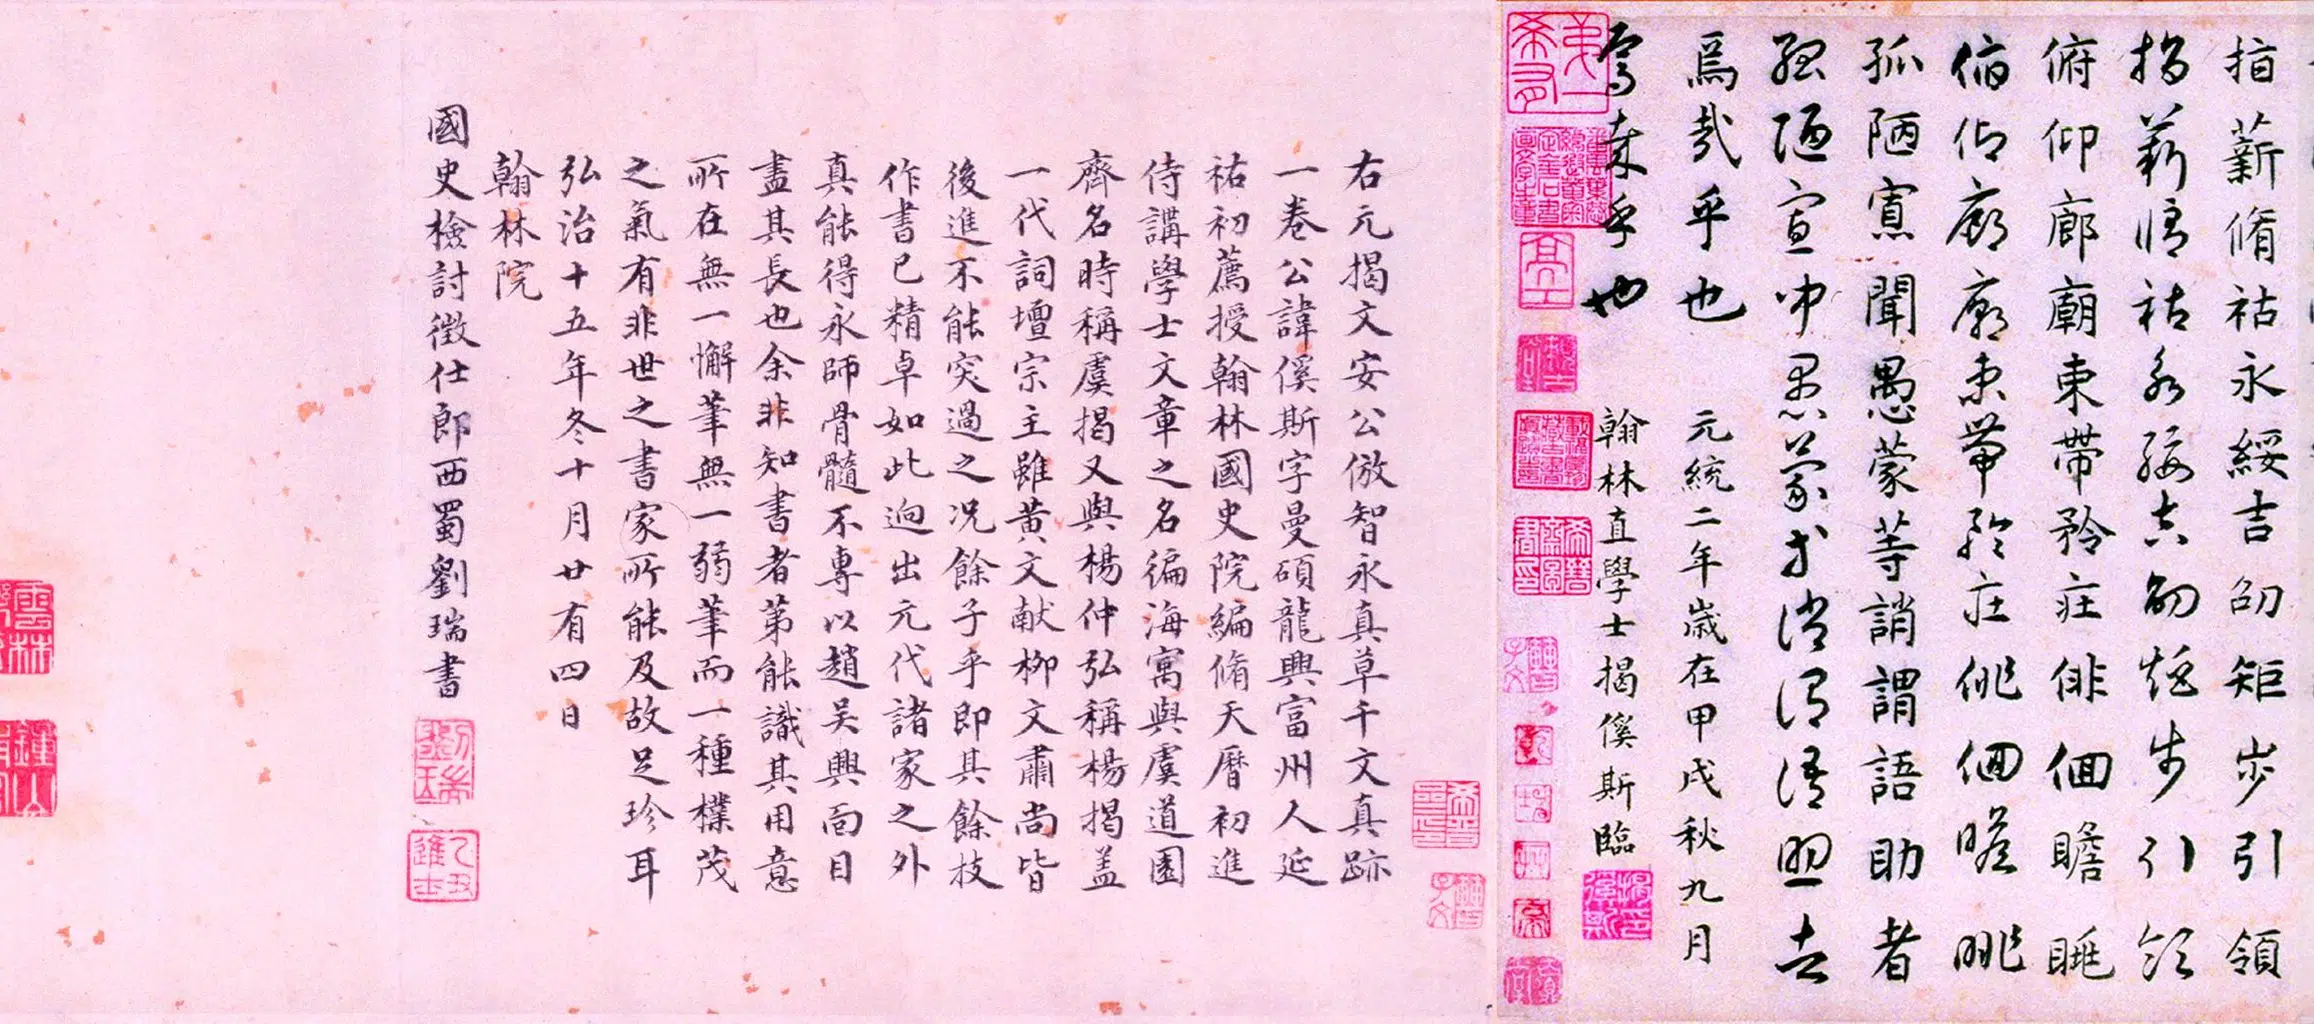 指薪脩祜永綏吉劭矩步引領
指薪脩祜永綏吉劭矩步引領
俯仰廊廟束帶矜庄俳佪瞻眺
俯仰廊廟束帶矜庄俳佪瞻眺
孤陋寡聞愚蒙等誚謂語助者
孤陋寡聞愚蒙等誚謂語助者
焉哉乎也
元統二年歲在甲戌秋九月
焉哉乎也
翰林直學士揭傒斯臨
右元揭文安公倣智永真草千文真跡
一卷公諱傒斯字曼碩龍興富州人延
祐初薦授翰林國史院編脩天曆初進
侍講學士文章之名徧海寓與虞道園
齊名時稱虞揭又與楊仲弘稱楊揭盖
一代詞壇宗主雖黃文献柳文肅尚皆
後進不能突過之况餘子乎即其餘技
作書已精卓如此迥出元代諸家之外
真能得永師骨髓不專以趙吳興面目
盡其長也余非知書者第能識其用意
所在無一懈筆無一弱筆而一種樸茂
之氣有非世之書家所能及故足珍耳
弘治十五年冬十月廿有四日
翰林院
國史檢討徵仕郎西蜀劉瑞書